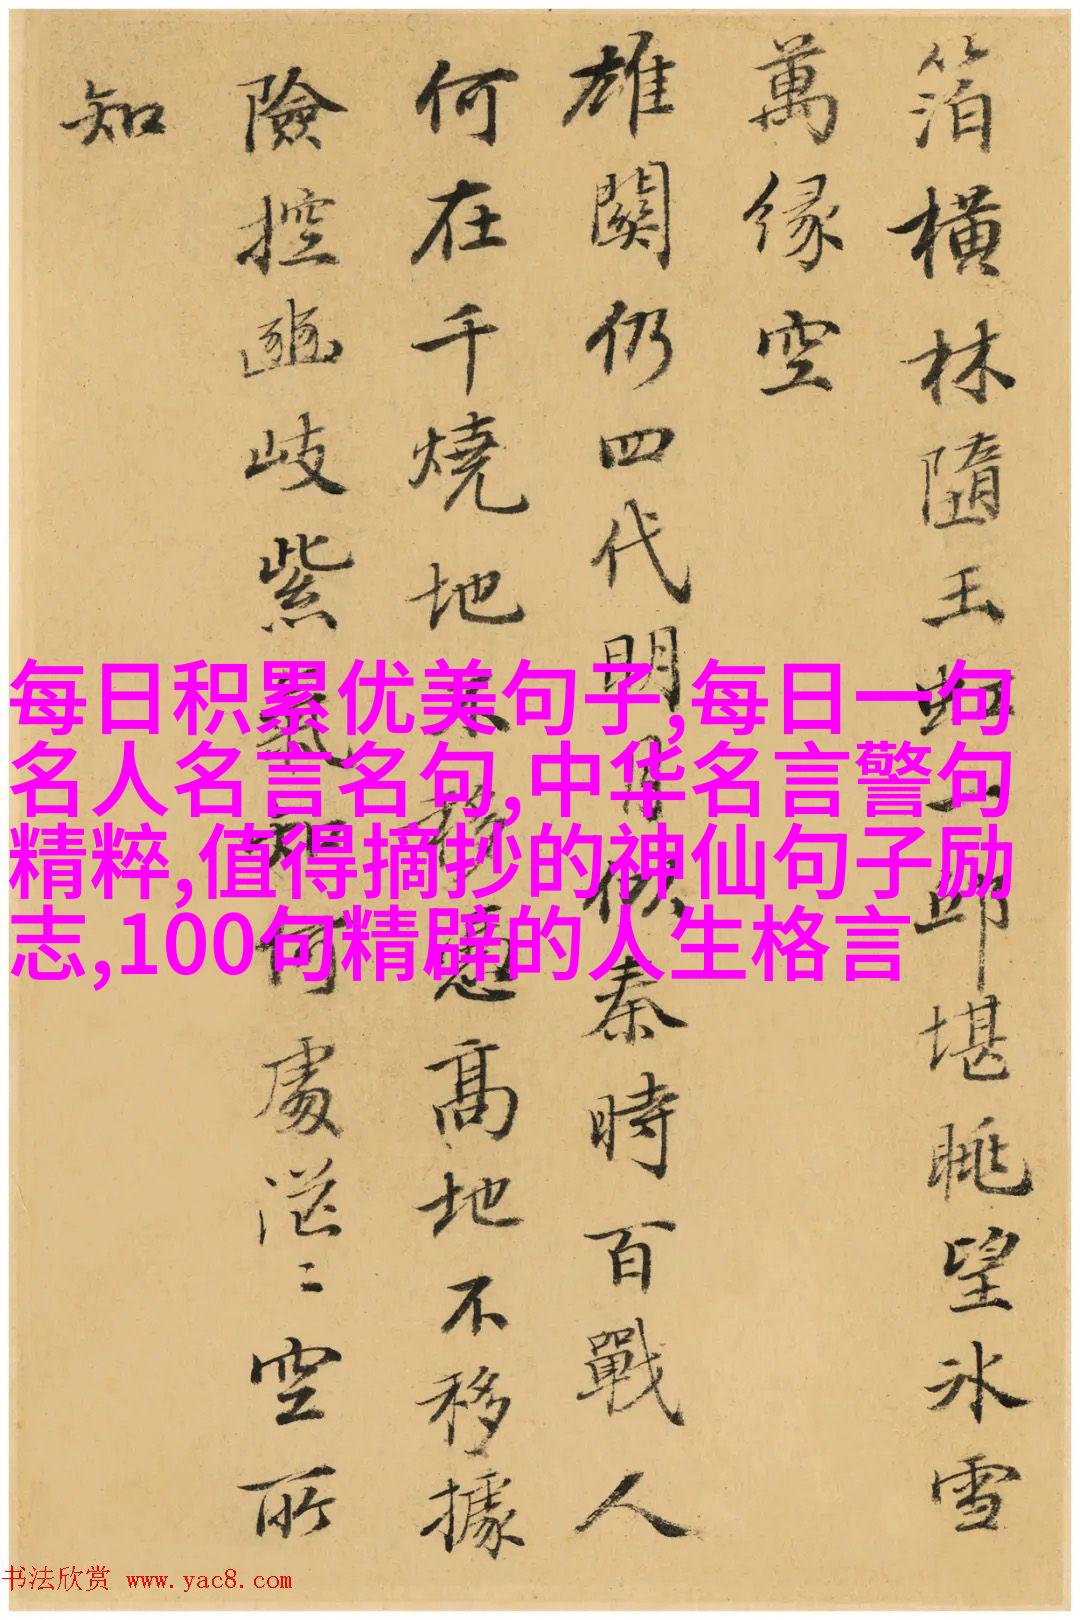 箔橫林隨玉虹上邱堪眺望氷雪
萬緣空
雄關仍四代明月似秦時百戰人
何在千燒地不移憑高地不移據
險控豳岐紫氣知何處茫〻空所
知
每日积累优美句子,每日一句
名人名言名句,中华名言警句
精粹,值得摘抄的神仙句子励
志,100句精辟的人生格言
书法欣赏 www.yac8.com